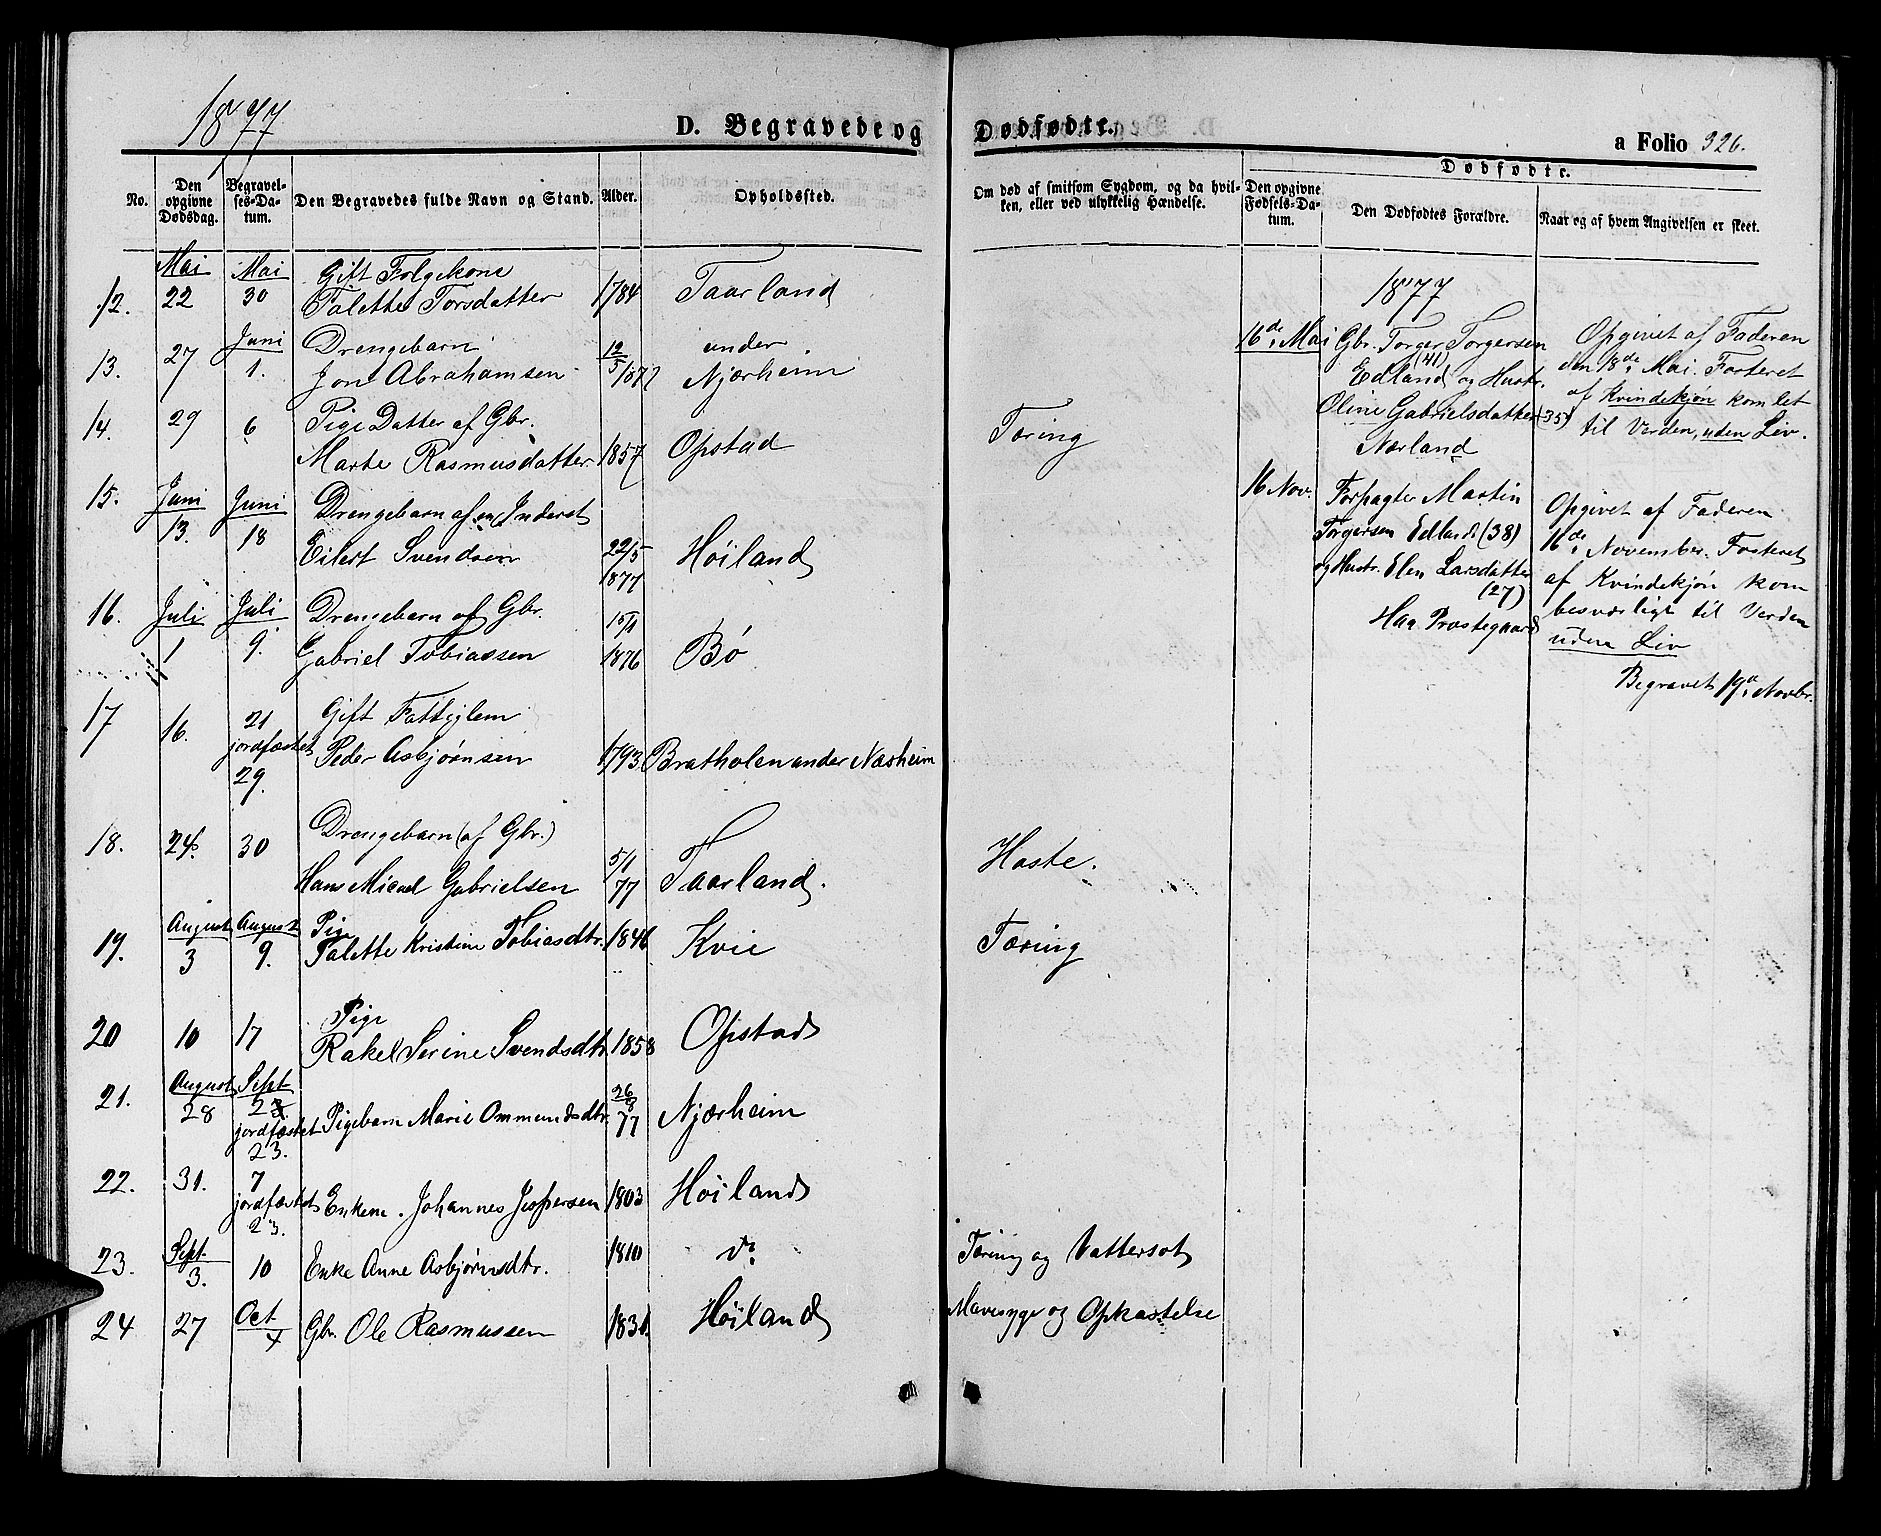 1877
D. Begravede og Dødfødte.
a Folio 326.
No.
Den opgivne Dødsdag.
Begravelses-Datum.
Den Begravedes fulde Navn og Stand.
Alder.
Opholdssted.
Om død af smitsom Sygdom, og da hvilken, eller ved ulykkelig Hændelse.
Dødfødte.
Den opgivne Fødsels-Datum.
Den Dødfødtes Forældre.
Naar og af hvem Angivelsen er skeet.
Mai Mai Gift Følgekone
12. 22 30 Talette Torsdatter 1784 Taarland
Juni Drengebarn 12 under
13. 27 1. Jon Abrahamsen 5/1877 Njærheim
14. 29 6 Pige Datter af Gbr.
Marte Rasmusdatter 1857 Opstad Tæring
15. Juni Juni Drengebarn af en Inderst
13. 18 Eilert Svendsen 22/5 1877 Høiland
16. Juli Juli Drengebarn af Gbr. 15/1
1 9. Gabriel Tobiassen 1876 Bø
17 16. 21 Gift Fattiglem
jordfæstet Peder Asbjørnsen 1793 Bratholen under Næsheim
29.
18. 24. 30 Drengebarn (af Gbr.) 5/1
Hans Micael Gabrielsen 77 Taarland. Hoste.
August August Pige
19. 3 9. Talette Kristine Tobiasdtr. 1846 Kvie Tæring
Pige
20 10 17 Rakel Serine Svendsdtr. 1858 Opstad
August Sept 26/8
21. 28 2 Pigebarn Marie Ommundsdtr. 77 Njærheim
jordfæstet
23.
22. 31. 7
jordfæstet Enkem. Johannes Jespersen 1803 Høiland
23.
23. Sept. 3. 10 Enke Anne Asbjørnsdtr. 1810 do Tæring og Vattersot
24 27 Oct 4 Gbr. Ole Rasmussen 1831. Høiland Mavesyge og Opkastelse
1877
16de Mai Gbr. Torger Torgersen
(41)
Edland og Hustr.
Oline Gabrielsdatter (35)
Nærland
Opgivet af Faderen
den 18de Mai. Fosteret
af Kvindekjøn kom let
til Verden, uden Liv.
16 Nov. Forpagter Martin
Torgersen Edland (38)
og Hustr. Elen Larsdatter
(27)
Haa Præstegaard
Opgivet af Faderen
16de November. Fosteret
af Kvindekjøn kom
besværligt til Verden
uden Liv
Begravet 19de Novbr.